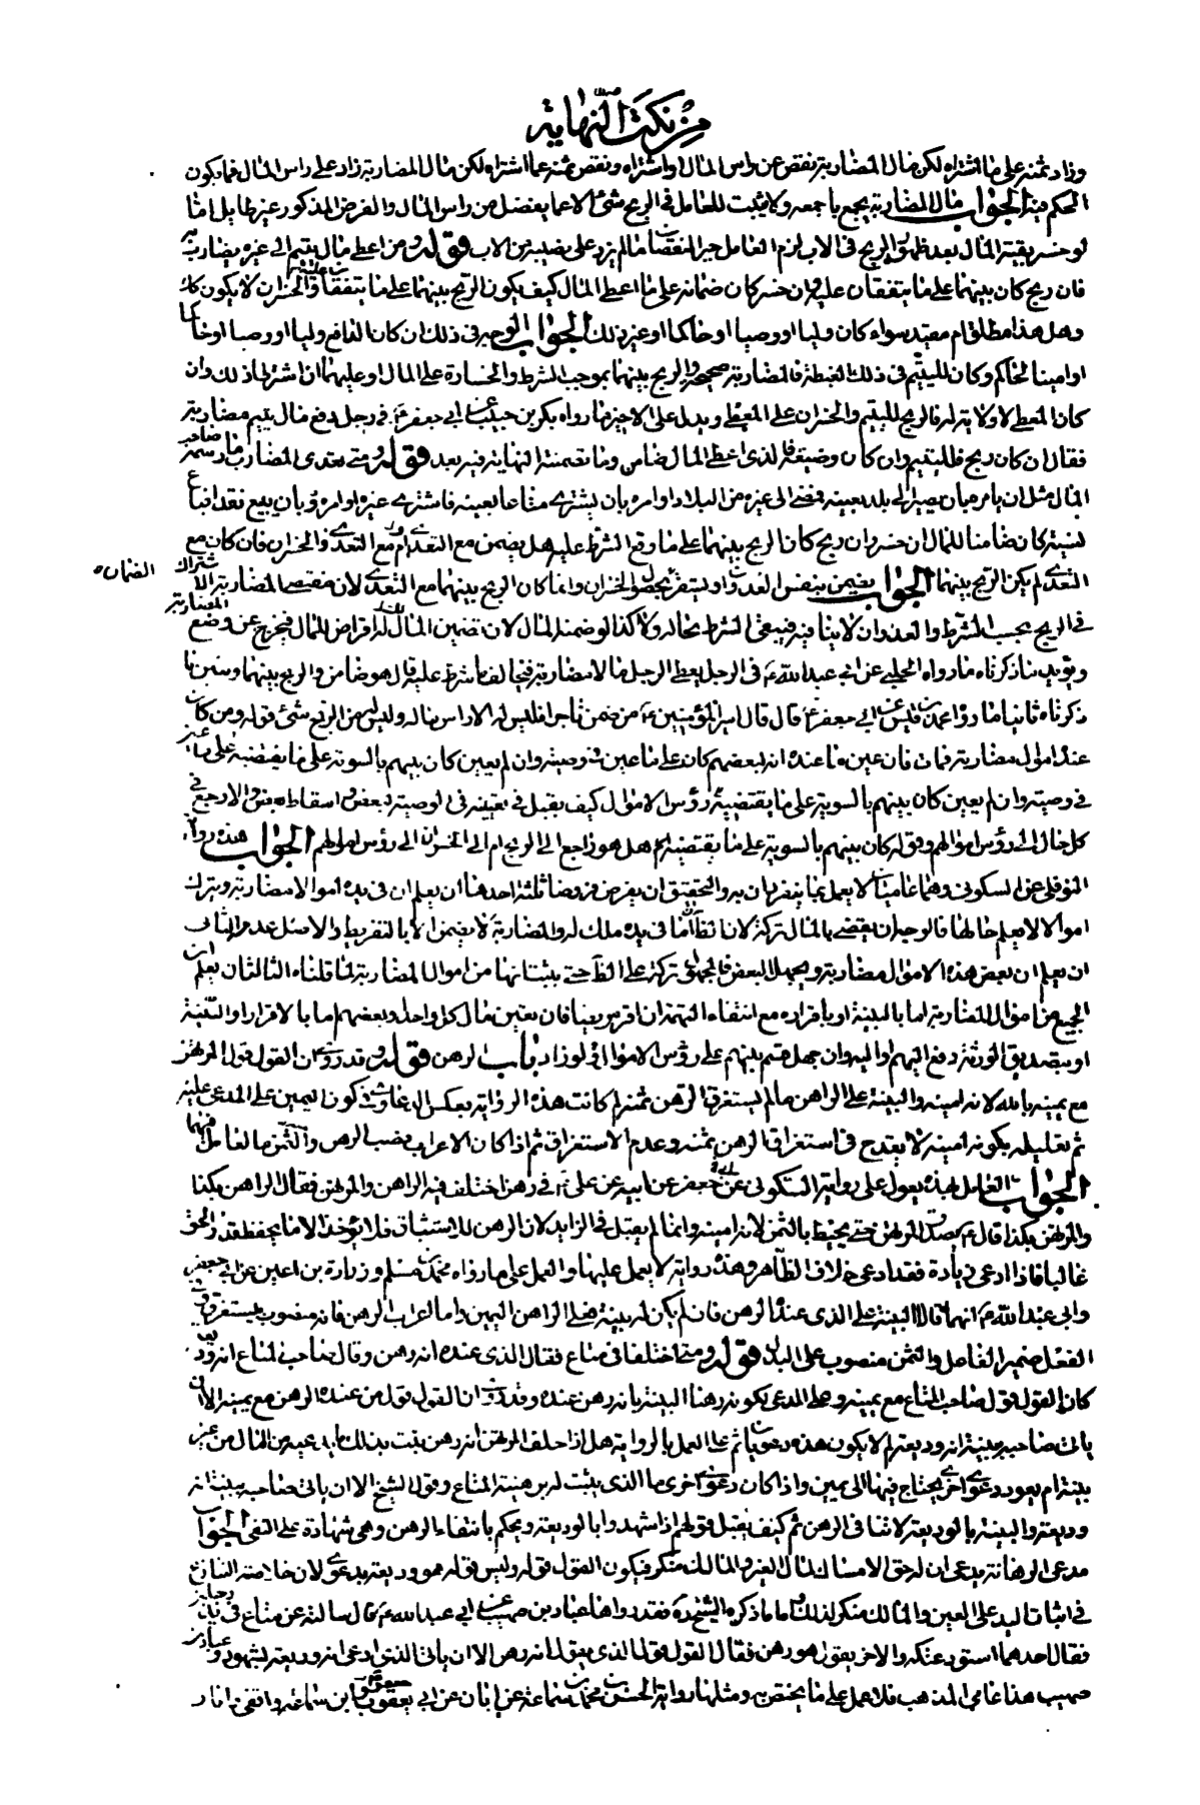 من نكت النهاية
وزاد ثمنه على ما اشتراه لكن مال المضاربة نقص عن راس المال او اشتراه ونقص ثمنه عما اشتراه لكن مال المضاربة زاد على راس المال فما يكون
الحكم فيه الجواب مال المضاربة يجمع باجمعه ولا يثبت للعامل في الربح شئ الا عما يفضل من راس المال والفرض المذكور غير طايل اما
لو خسر بقية المال بعد ظهور الربح في الاب لزم العامل جبر النقصان ما لم يزد على نصيبه من الاب قوله ومن اعطى مال يتيم الى غيره مضاربة
فان ربح كان بينهما على ما يتفقان عليه وان خسر كان ضمانه على من اعطى المال كيف يكون الربح بينهما على ما يتفقان عليه والخسران لا يكون كك
وهل هذا مطلق ام مقيد سواء كان وليا او وصيا او حاكما او غير ذلك الجواب الوجه في ذلك ان كان الدافع وليا او وصيا او حاكما
او امين الحاكم وكان لليتيم في ذلك الغبطة فالمضاربة صحيحة والربح بينهما بموجب الشرط والخسارة على المال او عليهما ان اشترطا ذلك وان
كان المعطى لا ولاية له فالربح لليتيم والخسران على المعطى ويدل على الاخير ما رواه بكر بن حبيب عن ابي جعفر ع في رجل دفع مال يتيم مضاربة
فقال ان كان ربح فلليتيم وان كان وضيعة فالذي اعطى المال ضامن وما تضمنته النهاية فيه بعد قوله ومتى تعدى المضارب ما رسمه صاحب
المال مثل ان يامر ان يصير الى بلد بعينه فمضى الى غيره من البلاد او امره بان يشتري متاعا بعينه فاشترى غيره او امره بان يبيع نقدا فباع
نسيئة كان ضامنا للمال ان خسر وان ربح كان الربح بينهما على ما وقع الشرط عليه هل يضمن مع التعدي ام مع التعدي والخسران فان كان مع
التعدي لم يكن الربح بينهما الجواب يضمن بنفس العدوان ويستقر بحصول الخسران وانما كان الربح بينهما مع التعدي لان مقتضى المضاربة الاشتراك
في الربح بحسب الشرط والعدوان لا ينافيه فيبقى الشرط بحاله ولا كذا لو ضمنه المال لان تضمين المال له اقراض للمال فيخرج عن وضع المضاربة
الضمان
ويؤيد ما ذكرناه ما رواه الحلبي عن ابي عبد الله ع في الرجل يعطى الرجل مالا مضاربة فيخالف ما شرط عليه قال هو ضامن والربح بينهما ويبين ما
ذكرناه ثانيا ما رواه محمد بن قيس عن ابي جعفر ع قال قال امير المؤمنين ع من ضمن تاجرا فليس له الا راس ماله وليس له من الربح شئ قوله ومن كان
عنده اموال مضاربة فمات فان عين ما عنده انه لبعضهم كان على ما عين في وصيته وان لم يعين كان بينهم بالسوية على ما يقتضيه على ما عين
في وصيته وان لم يعين كان بينهم بالسوية على ما يقتضيه رؤس الاموال كيف يقبل في تعيينه في الوصية لبعض واسقاط بعض والا رجع في
كل حال الى رؤس اموالهم وقوله كان بينهم بالسوية على ما يقتضيه هل هو راجع الى الربح ام الى الخسران الى رؤس اموالهم الجواب هذه رواية
النوفلي عن السكوني وهما عاميان لا يعمل بما ينفردان به والتحقيق ان يفرض فروضا ثلثة احدها ان يعلم ان في يده اموالا مضاربة ويترك
اموالا لا يعلم حالها فالوجه ان يقضى بالمال تركة لان الظاهر ان ما في يده ملك له والمضاربة لا يضمن الا بالتفريط والاصل عدمه الثاني
ان يعلم ان بعض هذه الاموال مضاربة ويجهل البعض فالمجهول تركة على الظاهر حتى يثبت انها من اموال المضاربة لما قلناه الثالث ان يعلم ان
الجميع من اموال المضاربة اما بالبينة او باقراره مع انتفاء التهمة ان اقر مريضا فان تعين مال كل واحد وبعضهم اما بالاقرار او البينة
او بتصديق الورثة دفع اليهم واليه وان جهل قسم بينهم على رؤس الاموال ولو زاد باب الرهن قوله وقد روى ان القول قول المرتهن
مع يمينه بالله لانه امينه والبينة على الراهن ما لم يستغرق الرهن ثمنه لم كانت هذه الرواية بعكس الدعاوى في كون اليمين على المدعى عليه
ثم تعليله بكونه امينه لا يقدح في استغراق الرهن ثمنه وعدم الاستغراق ثم اذا كان الاعراب بنصب الرهن والثمن ما الفاعل فيهما
الجواب القائل بهذه يعول على رواية السكوني عن جعفر عن ابيه عن علي ع في رهن اختلف فيه الراهن والمرتهن فقال الراهن بكذا
والمرتهن بكذا قال ع يصدق المرتهن حتى يحيط بالثمن لانه امينه وانما لم يقبل في الزايد لان الرهن للاستيثاق فلا يؤخذ الا ما يحفظ قدر الحق
غالبا فاذا ادعى زيادة فقد ادعى خلاف الظاهر وهذه رواية لا يعمل عليها والعمل على ما رواه محمد بن مسلم وزرارة بن اعين عن ابي جعفر
وابي عبد الله ع انهما قالا البينة على الذي عنده الرهن فان لم يكن له بينة فعلى الراهن اليمين واما اعراب الرهن فانه منصوب بيستغرق وفي
الفعل ضمير الفاعل والثمن منصوب على البدل قوله ومتى اختلفا في متاع فقال الذي عنده انه رهن وقال صاحب المتاع انه وديعة
كان القول قول صاحب المتاع مع يمينه وعلى المدعي لكونه رهنا البينة بانه رهن عنده وقد روى ان القول قول من عنده الرهن مع يمينه الا ان
ياتي صاحبه ببينة انه وديعة لم لا يكون هذه دعويان ثم على العمل بالرواية هل اذا حلف المرتهن انه رهن يثبت بذلك ما يدعيه من المال من غير
بينة ام يعود دعوى اخرى يحتاج فيها الى يمين واذا كان دعوى اخرى ما الذي يثبت له برهنية المتاع وقول الشيخ الا ان ياتي صاحبه ببينة انه
وديعة والبينة بالوديعة لا تنافي الرهن ثم كيف يقبل قولهم اذا شهدوا بالوديعة ويحكم بانتفاء الرهن وهي شهادة على النفي الجواب
مدعى الرهانة يدعى ان له حق الامساك لمال الغير والمالك منكر فيكون القول قوله وليس قوله هو وديعة بدعوى لان حاصله التنازع
في اثبات اليد على العين والمالك منكر لذلك واما ما ذكره الشيخ ره فقد رواها عباد بن صهيب عن ابي عبد الله ع قال سالته عن متاع في يد رجلين
فقال احدهما استودعتكه والاخر يقول هو رهن فقال القول قول الذي يقول انه رهن الا ان ياتي الذي ادعى انه وديعة بشهود وعباد بن
صهيب هذا عامي المذهب فلا عمل على ما يختص به ومثلها رواية الحسن بن محمد بن سماعة عن ابان عن ابي يعقوب وابن سماعة واقفي وابان